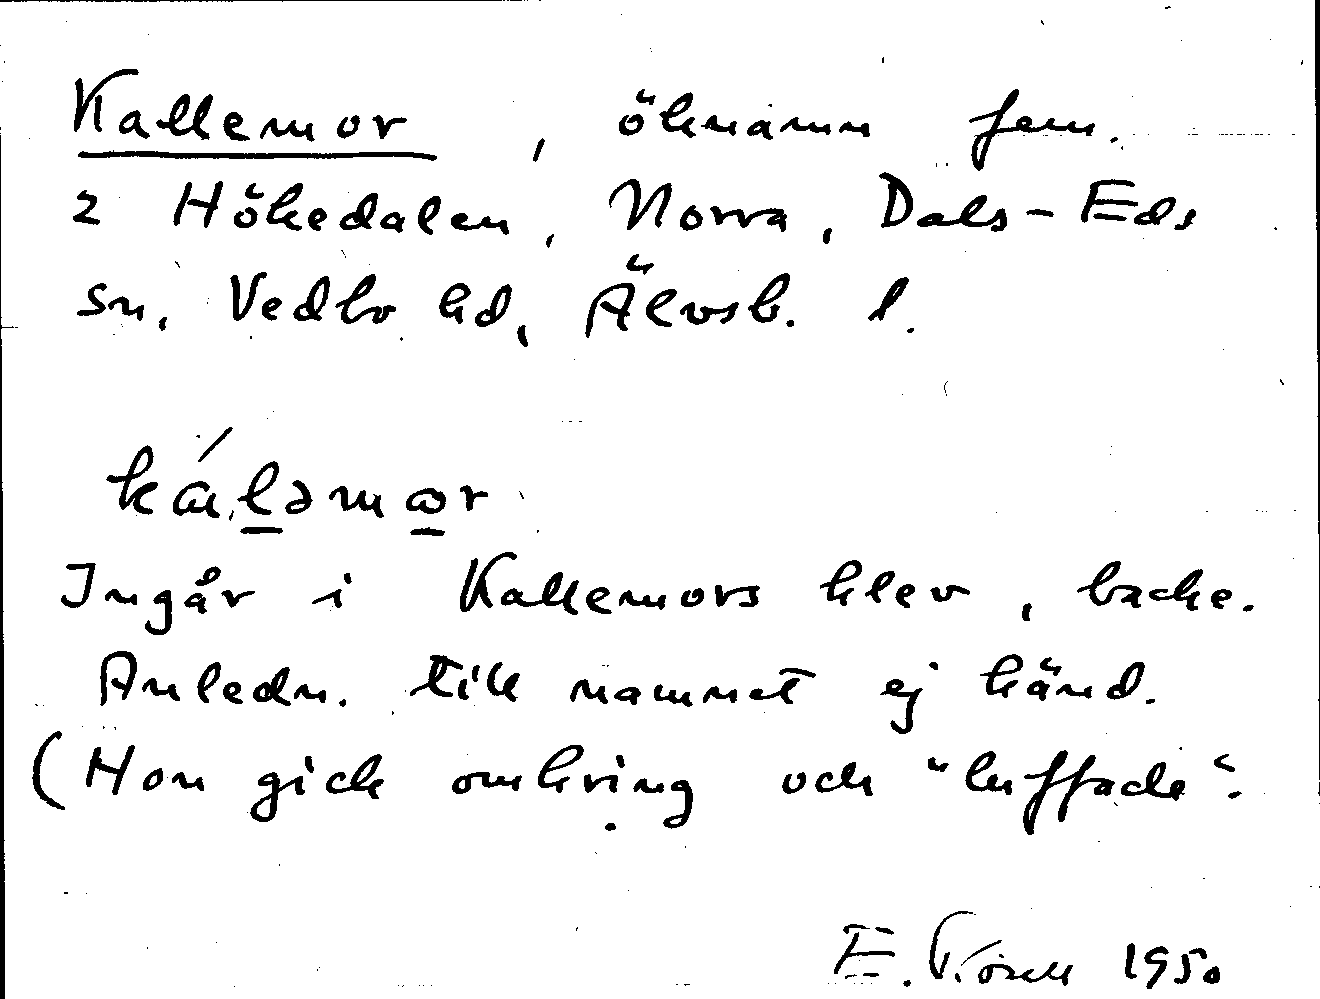 Kallemor, öknamn fem.
2 Hökedalen, Norra, Dals-Eds
sn, Vedbo hd, Älvsb. l.
kálə̱mo̱r
Ingår i Kallemors klev, backe.
Anledn. till namnet ej känd.
(Hon gick omkring och "luffade".
E. 1950